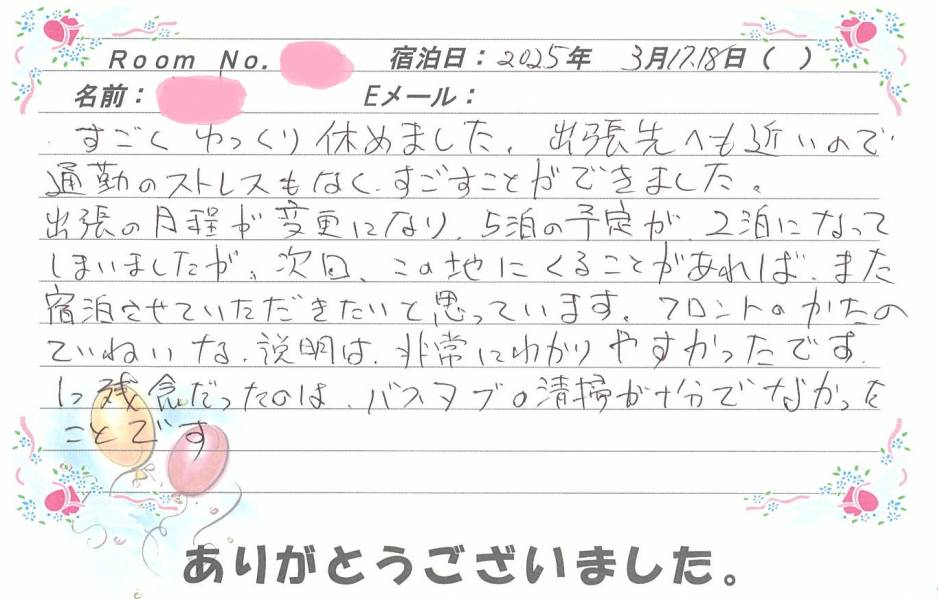 Room No. 宿泊日：2025年 3月17.18日（ ）
名前： Eメール：
すごくゆっくり休めました。出張先へも近いので
通勤のストレスもなく、すごすことができました。
出張の日程が変更になり、5泊の予定が、2泊になって
しまいましたが、次回、この地にくることがあれば、また
宿泊させていただきたいと思っています。フロントのかたの
ていねいな、説明は、非常にわかりやすかったです。
1つ残念だったのは、バスタブの清掃が十分でなかった
ことです
ありがとうございました。